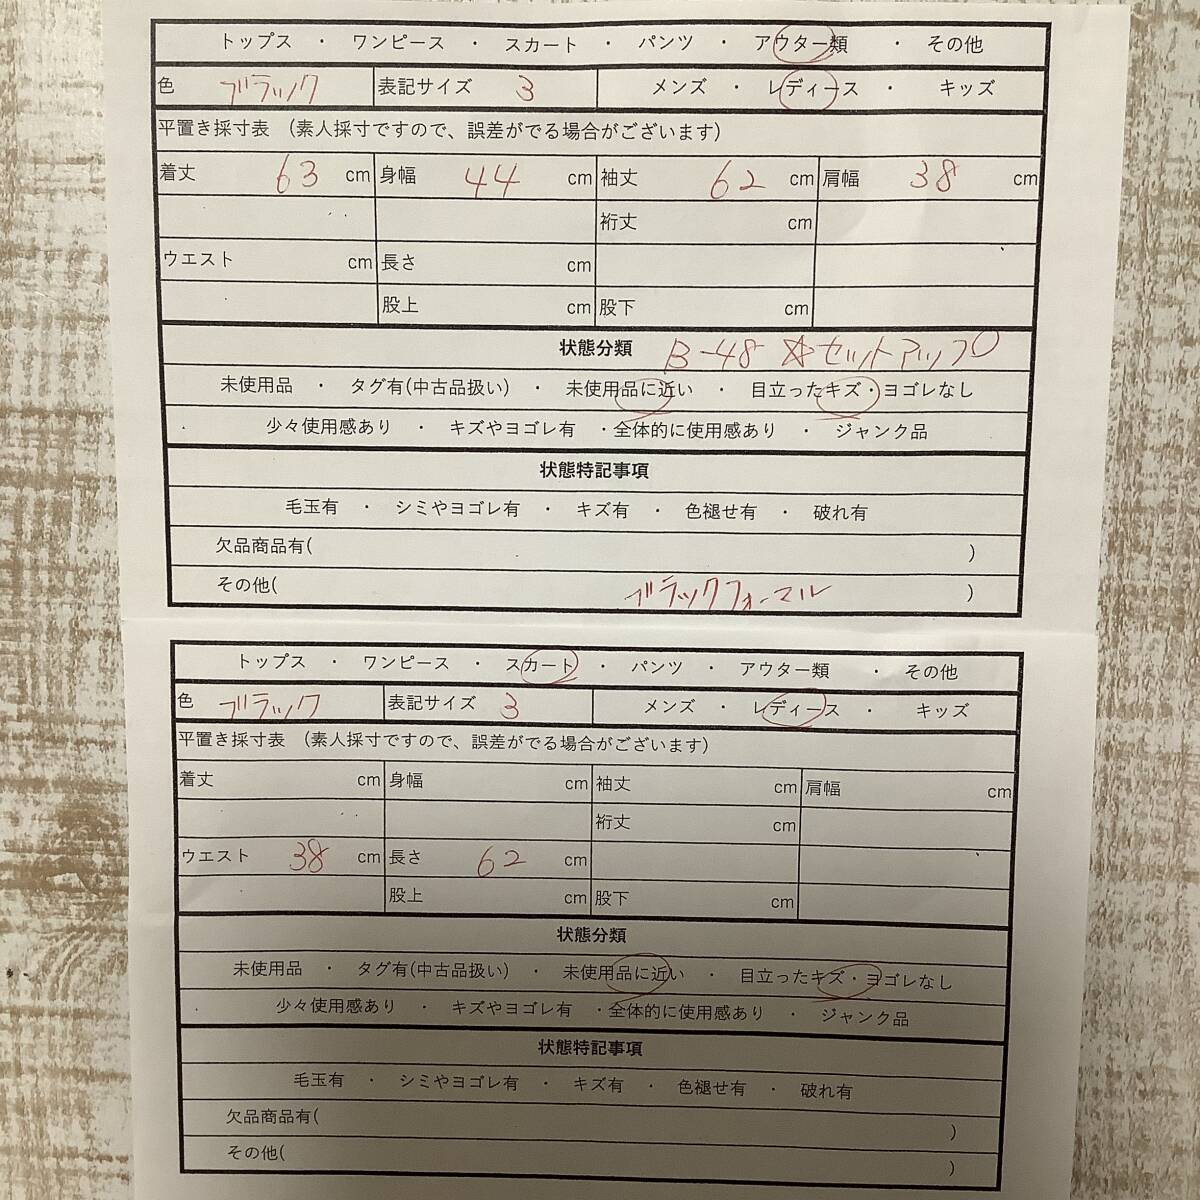 トップス ・ ワンピース ・ スカート ・ パンツ ・ アウター類 ・ その他
色 ブラック 表記サイズ 3 メンズ ・ レディース ・ キッズ
平置き採寸表 (素人採寸ですので、誤差がでる場合がございます)
着丈 63 cm 身幅 44 cm 袖丈 62 cm 肩幅 38 cm
裄丈 cm
ウエスト cm 長さ cm
股上 cm 股下 cm
状態分類 B-48 ☆セットアップ
未使用品 ・ タグ有(中古品扱い) ・ 未使用品に近い ・ 目立ったキズ・ヨゴレなし
少々使用感あり ・ キズやヨゴレ有 ・全体的に使用感あり ・ ジャンク品
状態特記事項
毛玉有 ・ シミやヨゴレ有 ・ キズ有 ・ 色褪せ有 ・ 破れ有
欠品商品有( )
その他( ブラックフォーマル )
トップス ・ ワンピース ・ スカート ・ パンツ ・ アウター類 ・ その他
色 ブラック 表記サイズ 3 メンズ ・ レディース ・ キッズ
平置き採寸表 (素人採寸ですので、誤差がでる場合がございます)
着丈 cm 身幅 cm 袖丈 cm 肩幅 cm
裄丈 cm
ウエスト 38 cm 長さ 62 cm
股上 cm 股下 cm
状態分類
未使用品 ・ タグ有(中古品扱い) ・ 未使用品に近い ・ 目立ったキズ・ヨゴレなし
少々使用感あり ・ キズやヨゴレ有 ・全体的に使用感あり ・ ジャンク品
状態特記事項
毛玉有 ・ シミやヨゴレ有 ・ キズ有 ・ 色褪せ有 ・ 破れ有
欠品商品有( )
その他( )